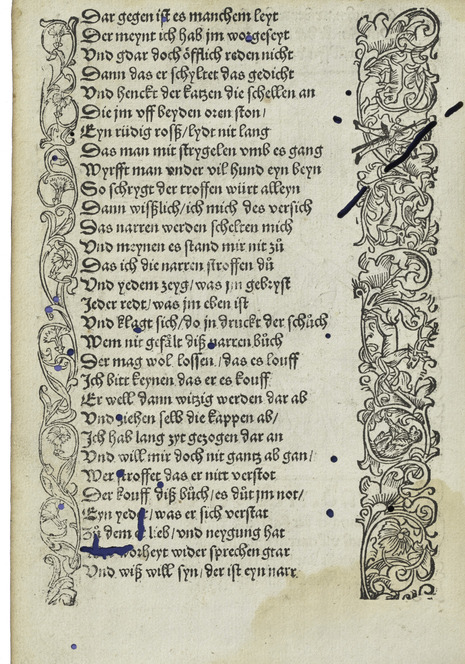 Dar gegen ist es manchem leyt
Der meynt ich hab jm worgeseyt
Vnd gdar doch öfflich reden nicht
Dann das er schyltet das gedicht
Vnd henckt der katzen die schellen an
Die jm vff beyden oren ston/
Eyn rüdig rosß/lydt nit lang
Das man mit strygelen vmb es gang
Wyrfft man vnder vil hund eyn beyn
So schrygt der troffen würt alleyn
Dann wißlich/ich mich des versich
Das narren werden schelten mich
Vnd meynen es stand mir nit zů
Das ich die narren stroffen dů
Vnd yedem zeyg/was jm gebryst
Jeder redt/was jm eben ist
Vnd klagt sich/do jn druckt der schůch
Wem nit gefält diß narren bůch
Der mag wol lossen/das es louff
Ich bitt keynen das er es kouff
Er well dann witzig werden dar ab
Vnd ziehen selb die kappen ab/
Ich hab lang zyt gezogen dar an
Vnd will mir doch nit gantz ab gan/
Wer stroffet das er nitt verstot
Der kouff diß bůch/es důt jm not/
Eyn yeder/was er sich verstat
Zů dem lieb/vnd neygung hat
worheyt wider sprechen gtar
Vnd wiß will syn/der ist eyn narr